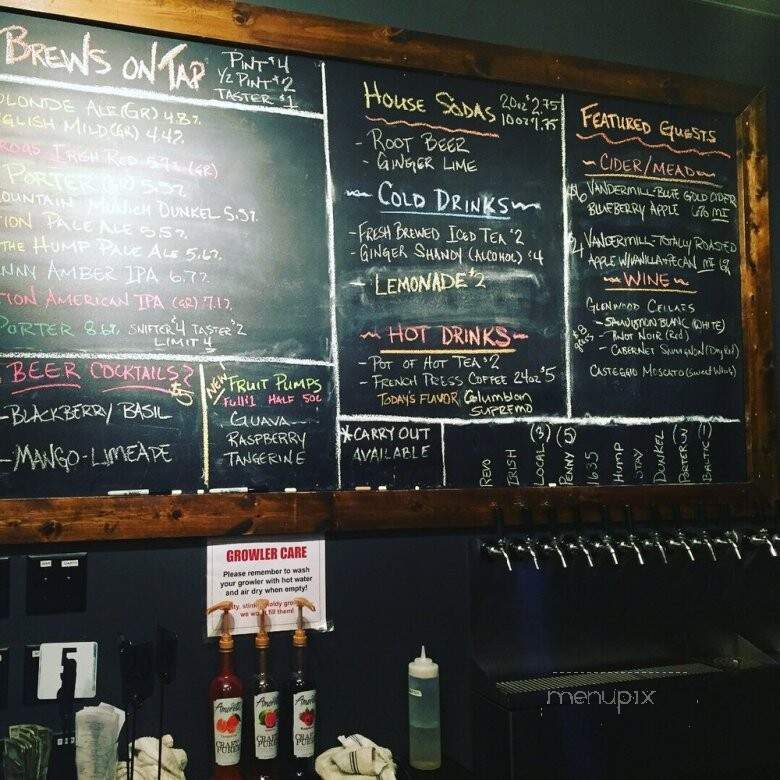 BREWS ON TAP
PINT $4
1/2 PINT $2
TASTER $1
LONDE ALE (GR) 4.8%
GLISH MILD (GR) 4.4%
IRISH RED 5.7% (GR)
PORTER 5.5%
OUNTAIN MUNICH DUNKEL 5.3%
TION PALE ALE 5.5%
THE HUMP PALE ALE 5.6%
NNY AMBER IPA 6.7%
TION AMERICAN IPA (GR) 7.1%
PORTER 8.6% SNIFTER $4 TASTER $2
LIMIT 4
BEER COCKTAILS? $5
-BLACKBERRY/BASIL
-MANGO-LIMEADE
NEW FRUIT PUMPS
Full $1 HALF 50¢
GUAVA
RASPBERRY
TANGERINE
HOUSE SODAS 20oz $2.75
10oz $1.75
- ROOT BEER
- GINGER LIME
COLD DRINKS
- FRESH BREWED ICED TEA $2
- GINGER SHANDY (ALCOHOL) $4
- LEMONADE $2
HOT DRINKS
- POT OF HOT TEA $2
- FRENCH PRESS COFFEE 24oz $5
TODAY'S FLAVOR Columbian
SUPREMO
*CARRY OUT
AVAILABLE
FEATURED GUESTS
- CIDER/MEAD
$6 VANDERMILL-BLUE GOLD CIDER
BLUEBERRY APPLE MI
$4 VANDERMILL-TOTALLY ROASTED
APPLE W/VANILLA PECAN MI
WINE
GLENWOOD CELLARS
- SAUVIGNON BLANC (WHITE)
- PINOT NOIR (Red)
- CABERNET SAUVIGNON (Dry Red)
$8
CASTEGGIO MOSCATO (Sweet White)
REVO
IRISH
LOCAL (3)
PENNY (5)
1635
HUMP
STAY
DUNKEL
PORTER (2)
BALTIC (1)
GROWLER CARE
Please remember to wash
your growler with hot water
and air dry when empty!
we won't fill them!
Amoretti
CRAFT
PURÉE
Amoretti
CRAFT
PURÉE
Amoretti
CRAFT
PURÉE
menupix